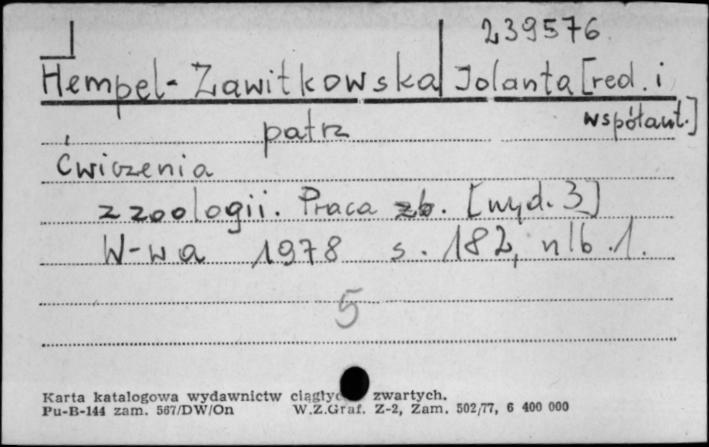 239576
Hempel-Zawitkowska Jolanta [red. i
współaut.]
patrz
Ćwiczenia
z zoologii. Praca zb. [wyd. 3]
W-wa 1978 s. 182, nlb. 1.
5
Karta katalogowa wydawnictw ciągłyc zwartych.
Pu-B-144 zam. 567/DW/On W.Z.Graf. Z-2, Zam. 502/77, 6 400 000